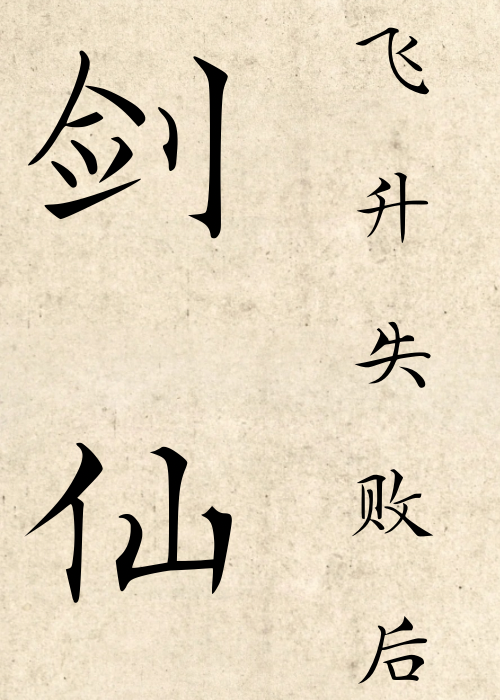 飞升失败后
剑仙